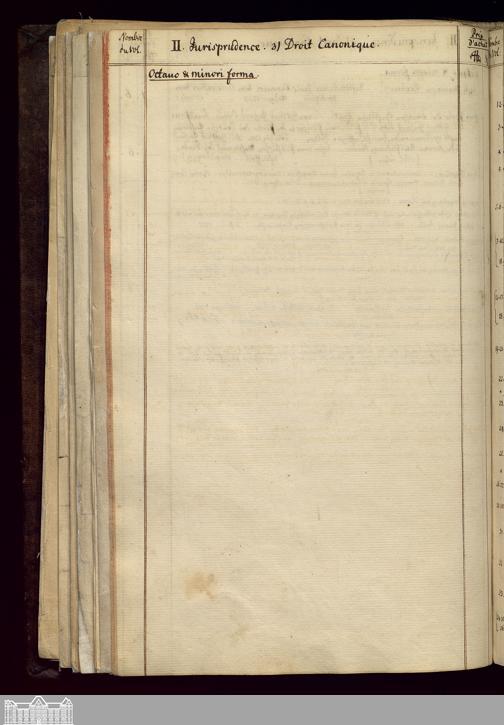 Nombre
du Vol.
II. Jurisprudence. 3) Droit Canonique.
Prix
D'achat
Octavo & minori forma.